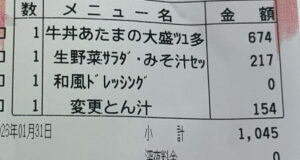 数 メニュー名 金額
1 牛丼あたまの大盛ﾂﾕ多 674
1 生野菜ｻﾗﾀﾞ･みそ汁ｾｯ 217
1 和風ﾄﾞﾚｯｼﾝｸﾞ 0
1 変更とん汁 154
23年01月31日 小計 1,045
深夜料金 0